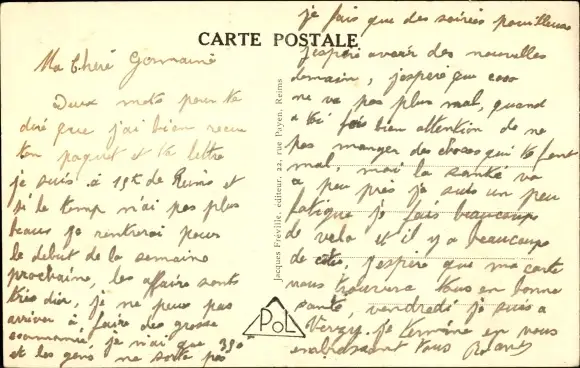 CARTE POSTALE
Ma Chéré Germainé
Deux mots pour te
diré que j'ai bien recu
ton paquet et ta lettre
je suis à 15k de Reims et
si le temp n'ai pas plus
beaus je rentrerai pour
le debut de la semaine
prochaine, les affaire sont
très dur, je ne peus pas
arriver à faire des grosse
, je n'ai que 350
et les gens ne sorte pas
Jacques Fréville, editeur, 22, rue Payen, Reims
POL
je fais que des soirées pouilleuse
J'espéré avoir des nouvelles
demain, j'espére que caca
ne va pas plus mal, quand
a toi fais bien attention de ne
pas manger des choses qui te font
mal, moi la santé va
a peu près je suis un peu
fatigue je fais beaucoup
de velo et il y a beaucoup
de cotes, j'espère que ma carte
vous trouvera tous en bonne
santé, vendredi je suis a
Verzy. Je termine en vous
embrassant tous